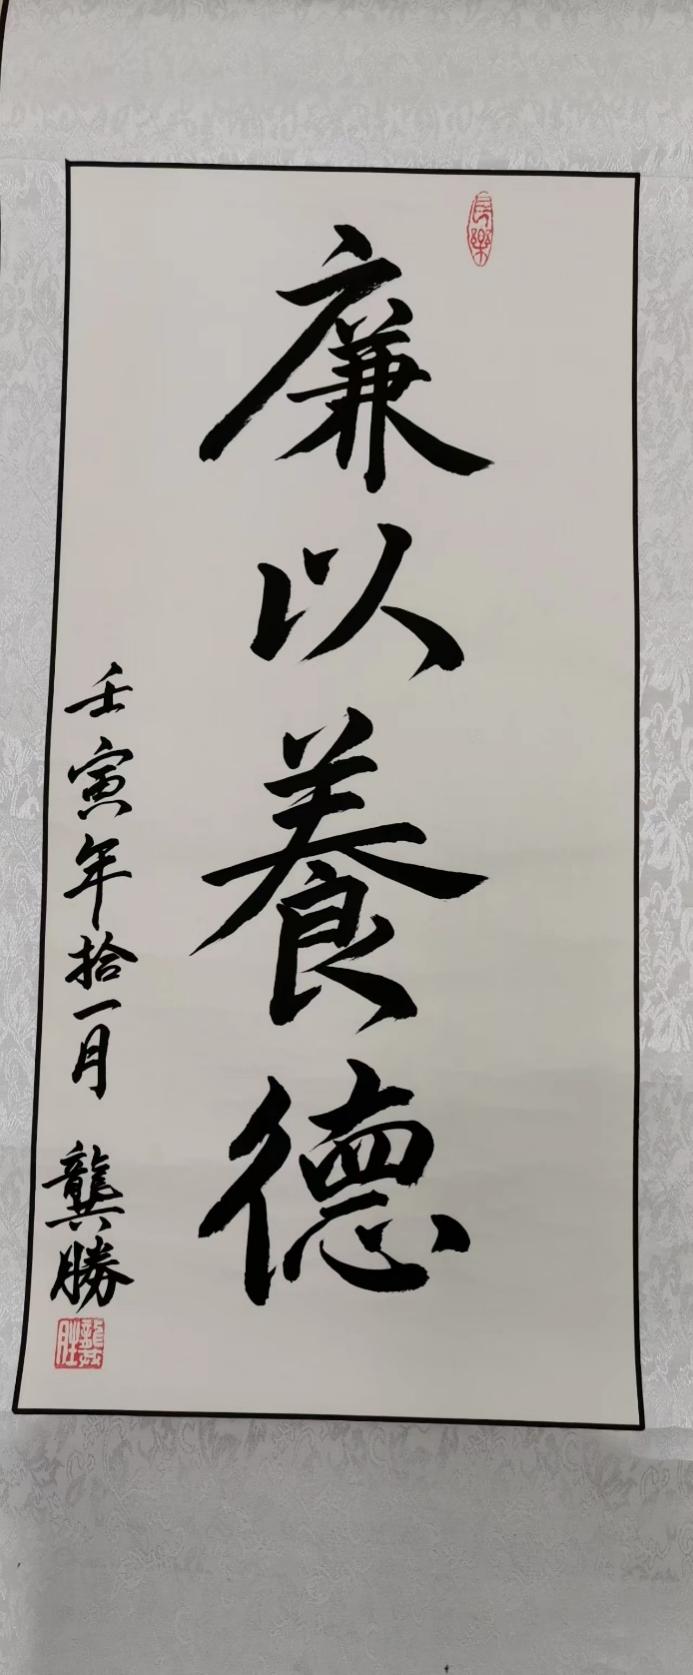 長樂
廉以養德
壬寅年拾一月 龔勝
龔胜